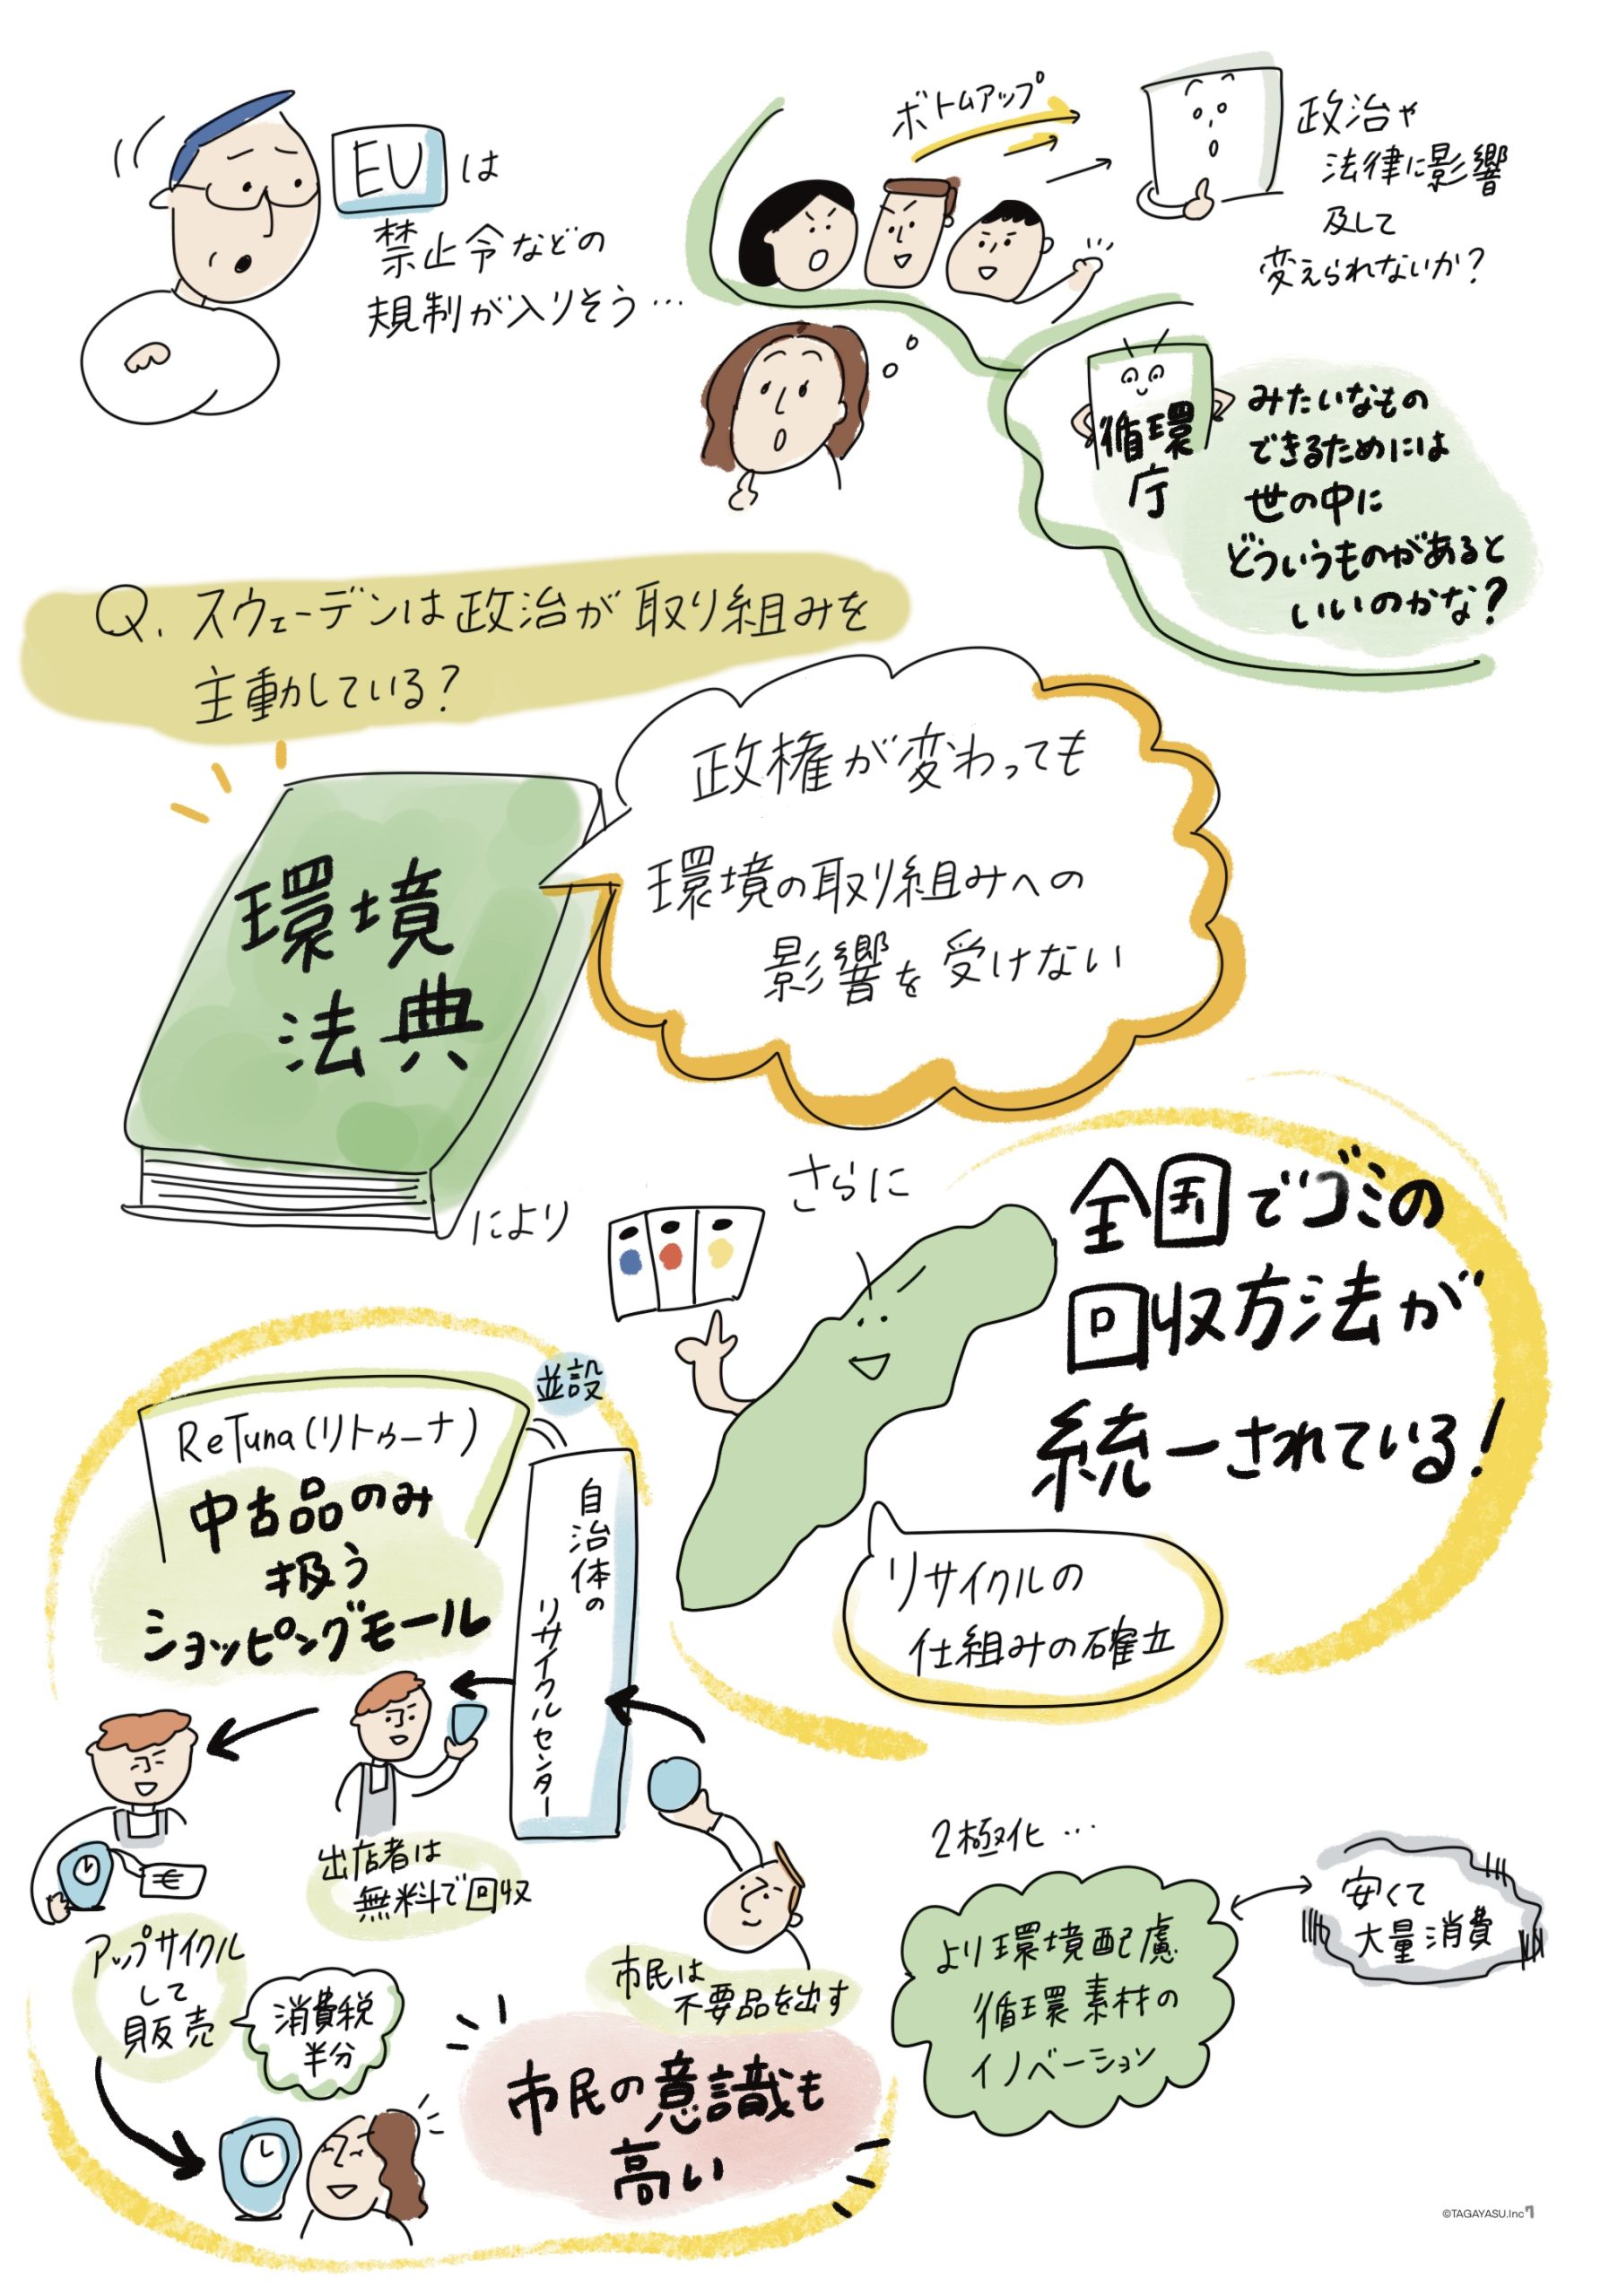 EUは
禁止令などの
規制が入りそう…
ボトムアップ
政治や
法律に影響
及して
変えられないか？
循環
庁
みたいなもの
できるためには
世の中に
どういうものがあると
いいのかな？
Q. スウェーデンは政治が取り組みを
主動している？
環境
法典
により
政権が変わっても
環境の取り組みへの
影響を受けない
さらに
全国でゴミの
回収方法が
統一されている！
リサイクルの
仕組みの確立
並設
ReTuna(リトゥーナ)
中古品のみ
扱う
ショッピングモール
自治体の
リサイクルセンター
出店者は
無料で回収
€
アップサイクル
して
販売
消費税
半分
市民は
不要品を出す
市民の意識も
高い
2極化…
より環境配慮
循環素材の
イノベーション
安くて
大量消費
©TAGAYASU.Inc